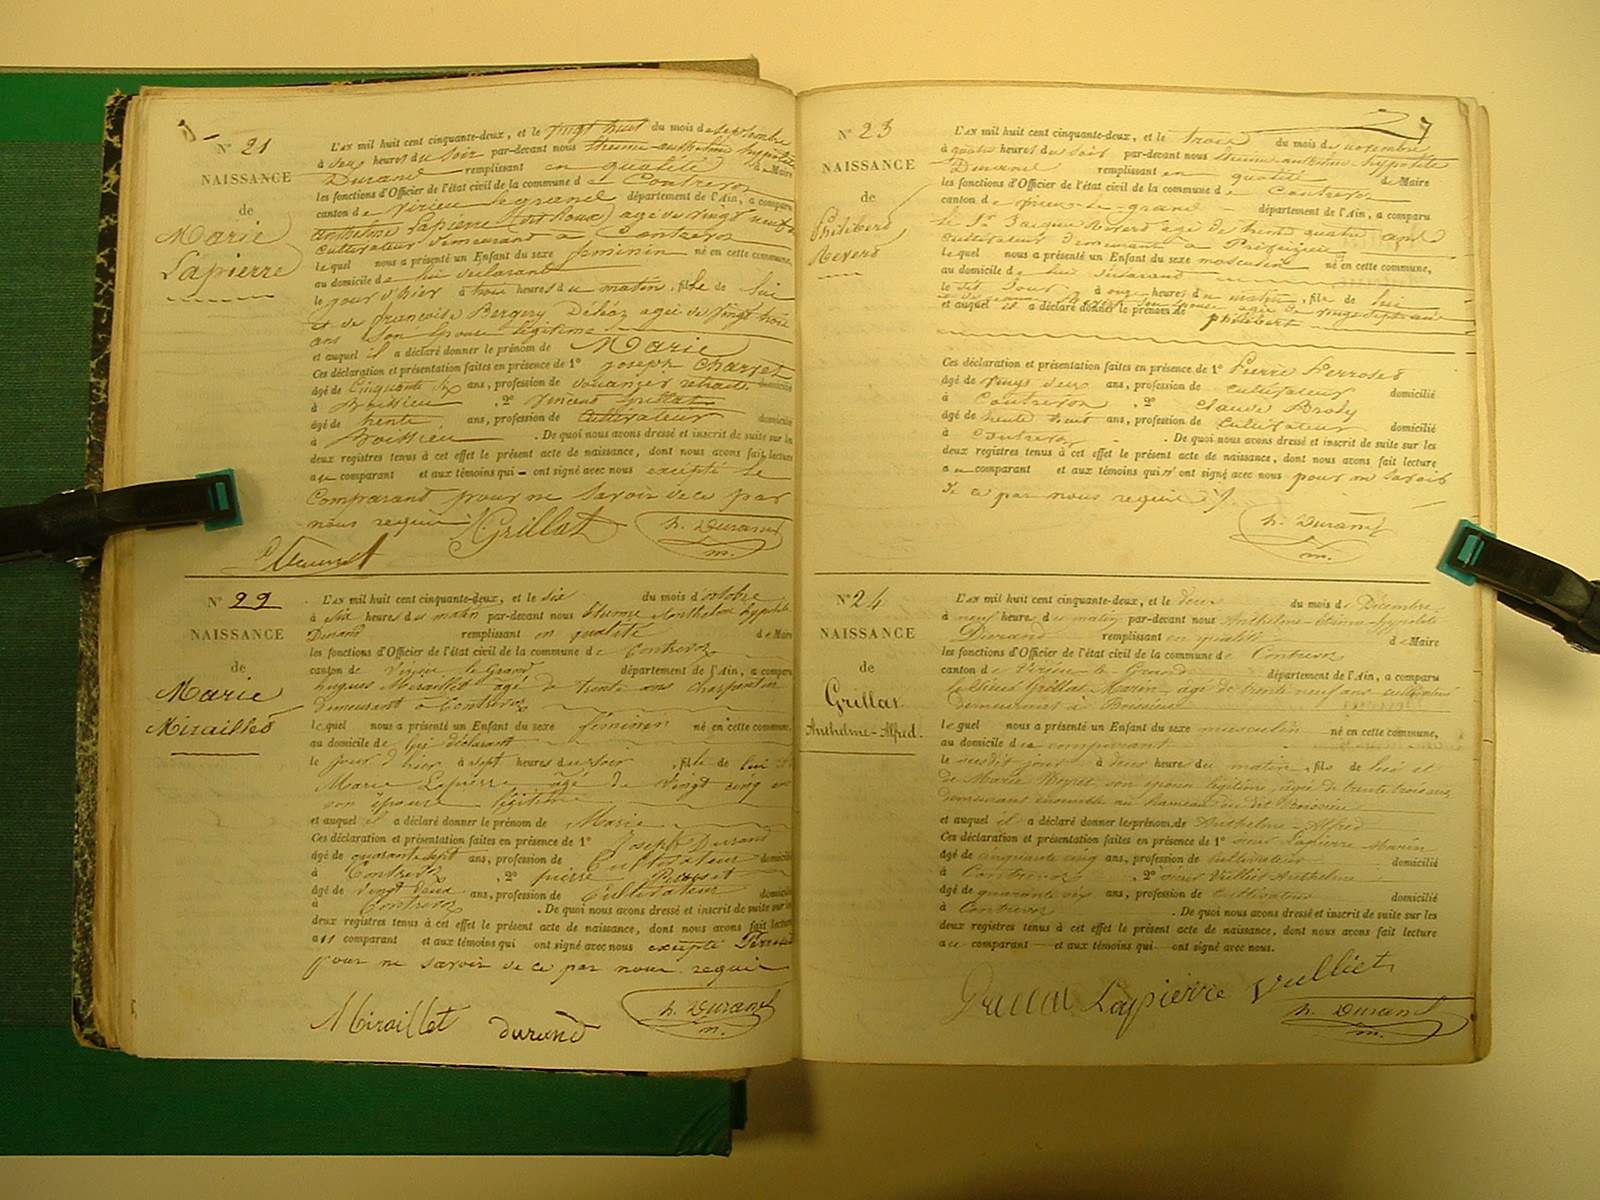 N° 21
NAISSANCE
de
Marie
Lapierre
L'AN mil huit cent cinquante-deux, et le vingt huit du mois de septembre
à heures du soir par-devant nous Etienne anthelme hypolite
Durand remplissant en qualité de Maire
les fonctions d'Officier de l'état civil de la commune de Contrevoz
canton de Virieu le grand département de l'Ain, a comparu
anthelme Lapierre agé de vingt neuf
cultivateur demeurant a Contrevoz
lequel nous a présenté un Enfant du sexe feminin né en cette commune,
au domicile de lui declarant
le jour d'hier à trois heures du matin, fille de lui
et de francoise Bergery agée de vingt trois
ans son épouse légitime
et auquel il a déclaré donner le prénom de Marie
Ces déclaration et présentation faites en présence de 1° joseph Charvet
âgé de Cinquante six ans, profession de douanier retraité domicilié
à Boissieu , 2° Vincent Grillat
âgé de trente ans, profession de Cultivateur domicilié
à Boissieu . De quoi nous avons dressé et inscrit de suite sur les
deux registres tenus à cet effet le présent acte de naissance, dont nous avons fait lecture
au comparant et aux témoins qui ont signé avec nous excepté le
Comparant pour ne savoir de ce par
nous requi
Grillat h. Durand
m.
N° 22
NAISSANCE
de
Marie
Miraillet
L'AN mil huit cent cinquante-deux, et le six du mois d'octobre
à six heures du matin par-devant nous Etienne Anthelme hypolite
Durand remplissant en qualité de Maire
les fonctions d'Officier de l'état civil de la commune de Contrevoz
canton de Virieu le Grand département de l'Ain, a comparu
hugues Miraillet agé de trente ans charpentier
demeurant a Contrevoz
lequel nous a présenté un Enfant du sexe féminin né en cette commune,
au domicile de lui déclarant
le jour d'hier à sept heures du soir , fille de lui et
Marie Lapierre agé de vingt cinq ans
son épouse légitime
et auquel il a déclaré donner le prénom de Marie
Ces déclaration et présentation faites en présence de 1° Joseph Durand
âgé de quarante sept ans, profession de Cultivateur domicilié
à Contrevoz , 2° pierre
âgé de vingt deux ans, profession de Cultivateur domicilié
à Contrevoz . De quoi nous avons dressé et inscrit de suite sur les
deux registres tenus à cet effet le présent acte de naissance, dont nous avons fait lecture
au comparant et aux témoins qui ont signé avec nous excepté
pour ne savoir de ce par nous requi
Miraillet durand h. Durand
m.
N° 23
NAISSANCE
de
Philibert
Reverd
L'AN mil huit cent cinquante-deux, et le trois du mois de novembre
à quatre heures du soir par-devant nous Etienne anthelme hypolite
Durand remplissant en qualité de Maire
les fonctions d'Officier de l'état civil de la commune de Contrevoz
canton de virieu-le-grand département de l'Ain, a comparu
le Sr Jacques Reverd agé de trente quatre ans
cultivateur demeurant a
lequel nous a présenté un Enfant du sexe masculin né en cette commune,
au domicile de lui déclarant
le dit jour à onze heures du matin, fils de lui
son épouse agée de vingt sept ans
et auquel il a déclaré donner le prénom de philibert
Ces déclaration et présentation faites en présence de 1° Pierre
âgé de vingt deux ans, profession de cultivateur domicilié
à Contrevoz , 2° Claude
âgé de trente huit ans, profession de Cultivateur domicilié
à Contrevoz . De quoi nous avons dressé et inscrit de suite sur les
deux registres tenus à cet effet le présent acte de naissance, dont nous avons fait lecture
au comparant et aux témoins qui n'ont signé avec nous pour ne savoir
de ce par nous requis
h. Durand
m.
N° 24
NAISSANCE
de
Grillat
Anthelme-Alfred.
L'AN mil huit cent cinquante-deux, et le deux du mois de Décembre
à neuf heures du matin par-devant nous Anthelme-Etienne-hypolite
Durand remplissant en qualité de Maire
les fonctions d'Officier de l'état civil de la commune de Contrevoz
canton de Virieu-le-Grand département de l'Ain, a comparu
le Sieur Grillat Marin agé de trente neuf ans cultivateur
demeurant à Boissieu
lequel nous a présenté un Enfant du sexe masculin né en cette commune,
au domicile de ce comparant
le susdit jour à deux heures du matin, fils de lui et
de Marie son épouse légitime, agée de trente trois ans,
demeurans ensemble au hameau du dit Boissieu
et auquel il a déclaré donner les prénoms de Anthelme-Alfred
Ces déclaration et présentation faites en présence de 1° sieur Lapierre Marin
âgé de cinquante cinq ans, profession de cultivateur domicilié
à Contrevoz , 2° sieur Vulliet Anthelme
âgé de quarante six ans, profession de cultivateur domicilié
à Contrevoz . De quoi nous avons dressé et inscrit de suite sur les
deux registres tenus à cet effet le présent acte de naissance, dont nous avons fait lecture
au comparant et aux témoins qui ont signé avec nous.
Grillat Lapierre Vulliet
h. Durand
m.